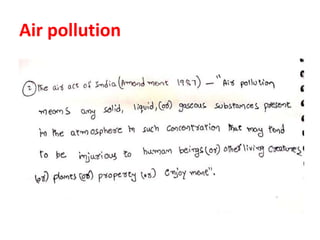 Air pollution
① the air act of India (Amendment 1987) – "Air pollution
means any solid, liquid, (or) gaseous substances present
in the atmosphere in such concentration that may tend
to be injurious to human beings (or) other living creatures
(or) plants (or) property (or) enjoyment".